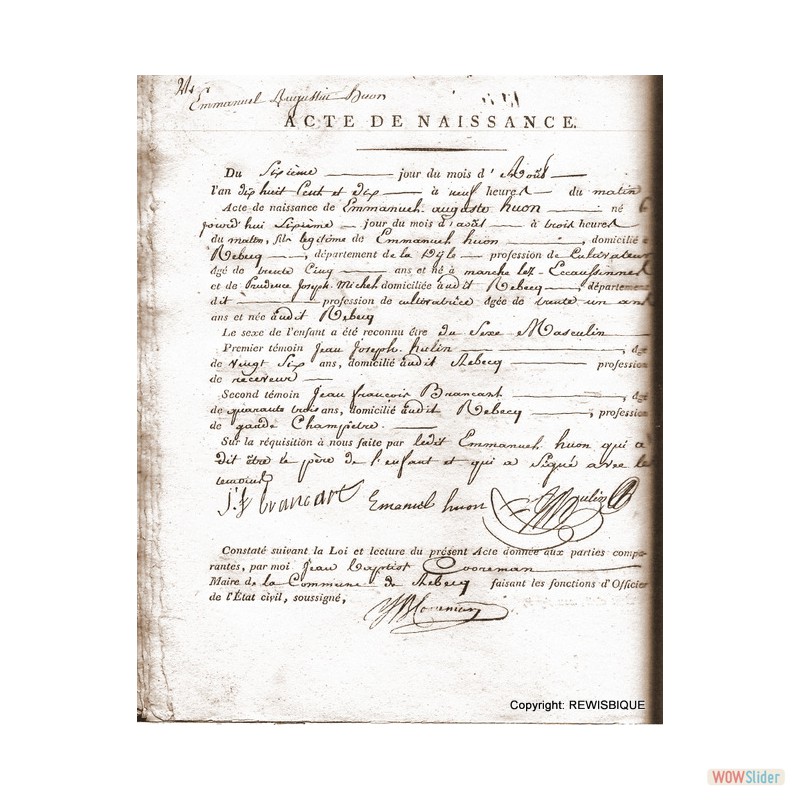 Emmanuel Augustin huon
ACTE DE NAISSANCE.
Du Sixième jour du mois d'Août
l'an dix huit Cent et dix à neuf heures du matin
Acte de naissance de Emmanuel. auguste huon né
jourd'hui Sixième jour du mois d'août à trois heures
du matin, fils legitime de Emmanuel huon domicilié
Rebecq, département de la Dyle profession de Cultivateur
âgé de trente Cinq ans et né à marche lez-Ecaussinnes
et de Prudence Joseph. Michel domiciliée audit Rebecq, département
dit profession de cultivatrice âgée de trente un ans
ans et née audit Rebecq
Le sexe de l'enfant a été reconnu être du Sexe Masculin
Premier témoin Jean Joseph. hulin, âgé
de vingt Six ans, domicilié audit Rebecq profession
de receveur
Second témoin Jean francois Brancart, âgé
de quarante trois ans, domicilié audit Rebecq, profession
de garde Champêtre.
Sur la réquisition à nous faite par ledit Emmanuel huon qui a
dit être le père de l'enfant et qui a Signé avec les
temoins
j.f brancart Emanuel huon hulin
Constaté suivant la Loi et lecture du présent Acte donnée aux parties compa-
rantes, par moi Jean baptist Cooreman
Maire de la Commune de Rebecq faisant les fonctions d'Officier
de l'État civil, soussigné,
JBCooreman
Copyright: REWISBIQUE
WOWSlider